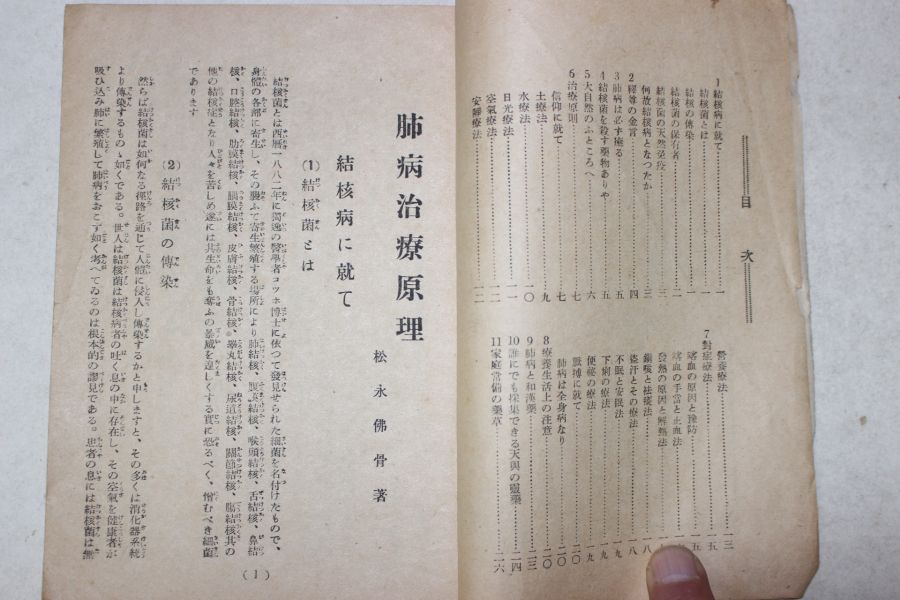 目次
1 結核病に就て……一
結核菌とは……一
結核の傳染……一
結核菌の保有者……二
結核菌の天然免疫……三
何故結核病となつたか……三
2 釋尊の金言……四
3 肺病は必ず癒る……五
4 結核菌を殺す藥物ありや……五
5 大自然のふところへ……六
6 治療原則……七
信仰に就て……七
土療法……九
水療法……一〇
日光療法……一一
空氣療法……一二
安靜療法……一二
營養療法……一三
7 對症療法……一五
喀血の原因と豫防……一五
喀血の手當と止血法
發熱の原因と解熱法
鎭咳と祛痰法……一八
盜汗とその療法……一八
不眠と安眠法……一九
下痢の療法……一九
便秘の療法……一九
脈搏に就て……二〇
肺病は全身病なり……二〇
8 療養生活上の注意……二〇
9 肺病と和漢藥……二三
10 誰にでも採集できる天與の靈藥……二四
11 家庭常備の藥草……二六
肺病治療原理
松永佛骨著
結核病に就て
(1) 結核菌とは
結核菌とは西曆一八八二年に獨逸の醫學者コツホ博士に依つて發見せられた細菌を名付けたもので、
身體の各部に寄生し、その襲ふて寄生繁殖する場所により肺結核、腹膜結核、喉頭結核、舌結核、鼻結
核、口腔結核、肋膜結核、腦膜結核、皮膚結核、骨結核、睾丸結核、尿道結核、關節結核、腸結核其の
他の結核症となり人々を苦しめ遂には其生命をも奪ふの暴威を逞しくする實に恐るべく、憎むべき細菌
であります
(2) 結核菌の傳染
然らば結核菌は如何なる徑路を通じて人體に侵入し傳染するかと申しますと、その多くは消化器系統
より傳染するものゝ如くである。世人は結核菌は結核病者の吐く息の中に存在し、その空氣を健康者が
吸ひ込み肺に繁殖して肺病をおこす如く考へてゐるのは根本的の謬見である。患者の息には結核菌は無
(1)